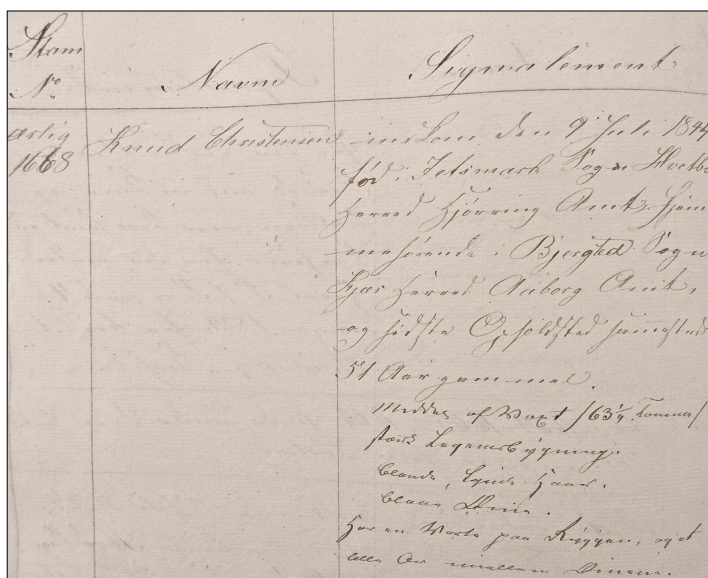 Stam No Navn Signalement
aarlig Knud Christensen indkom den 9 Juli 1844
1668 fød i Jetsmark Sogn Hvetbo
Herred Hjørring Amt, hjem
mehørende i Bjergsted Sogn
Kjær Herred Aalborg Amt,
og sidste Opholdsted sammesteds
51 Aar gammel.
Middel af Væxt /63¼ Tommer/
stærk Legemsbygning.
blonde, tynde Haar.
blaae Øine.
Har en Vorte paa Ryggen, og et
lille Ar imellem Øinene.